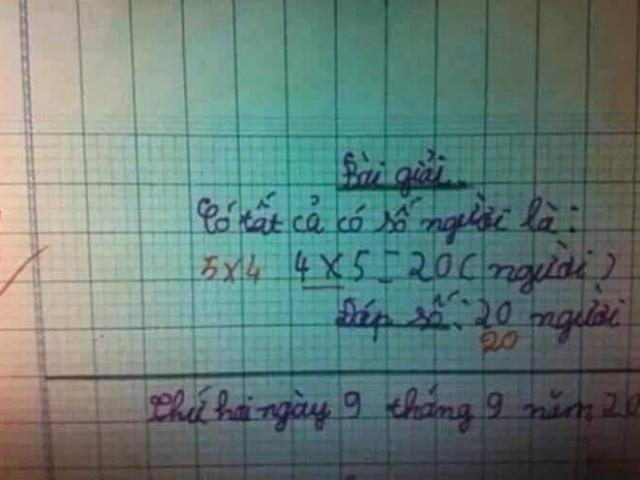 Bài giải
Có tất cả có số người là:
5x4 4 x 5 = 20 (người)
Đáp số: 20 người
20
Thứ hai ngày 9 tháng 9 năm 20